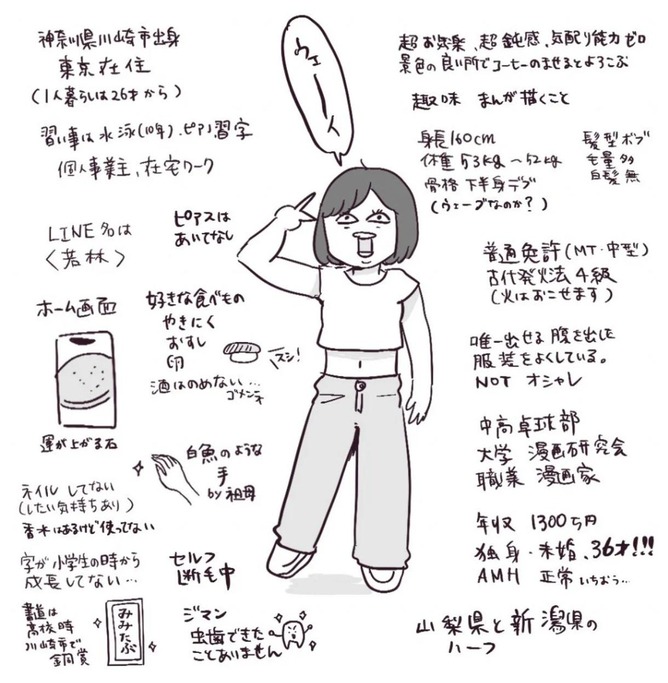 神奈川県川崎市出身
東京在住
(1人暮らしは26才から)
習い事は水泳(10年)、ピアノ習字
個人事業主、在宅ワーク
LINE名は
〈若林〉
ピアスは
あいてなし
ウェーーイ
超お気楽、超鈍感、気配り能力ゼロ
景色の良い所でコーヒーのませるとよろこぶ
趣味 まんが描くこと
身長160cm
体重53kg〜52kg
骨格 下半身デブ
(ウェーブなのか?)
髪型ボブ
毛量多
白髪無
普通免許(MT・中型)
古代発火法4級
(火はおこせます)
唯一出せる腹を出した
服装をよくしている。
NOT オシャレ
中高卓球部
大学 漫画研究会
職業 漫画家
年収 1300万円
独身・未婚、36才!!!
AMH 正常いちおう…
山梨県と新潟県の
ハーフ
ホーム画面
運が上がる石
好きな食べもの
やきにく
おすし
卵
スシ!
酒はのめない…
ゴメンネ
白魚のような
手
by 祖母
ネイル してない
(したい気持ちあり)
香水はあるけど使ってない
字が小学生の時から
成長してない…
セルフ
断毛中
書道は
高校時
川崎市で
金賞
みみたぶ
ジマン
虫歯できた
ことありません